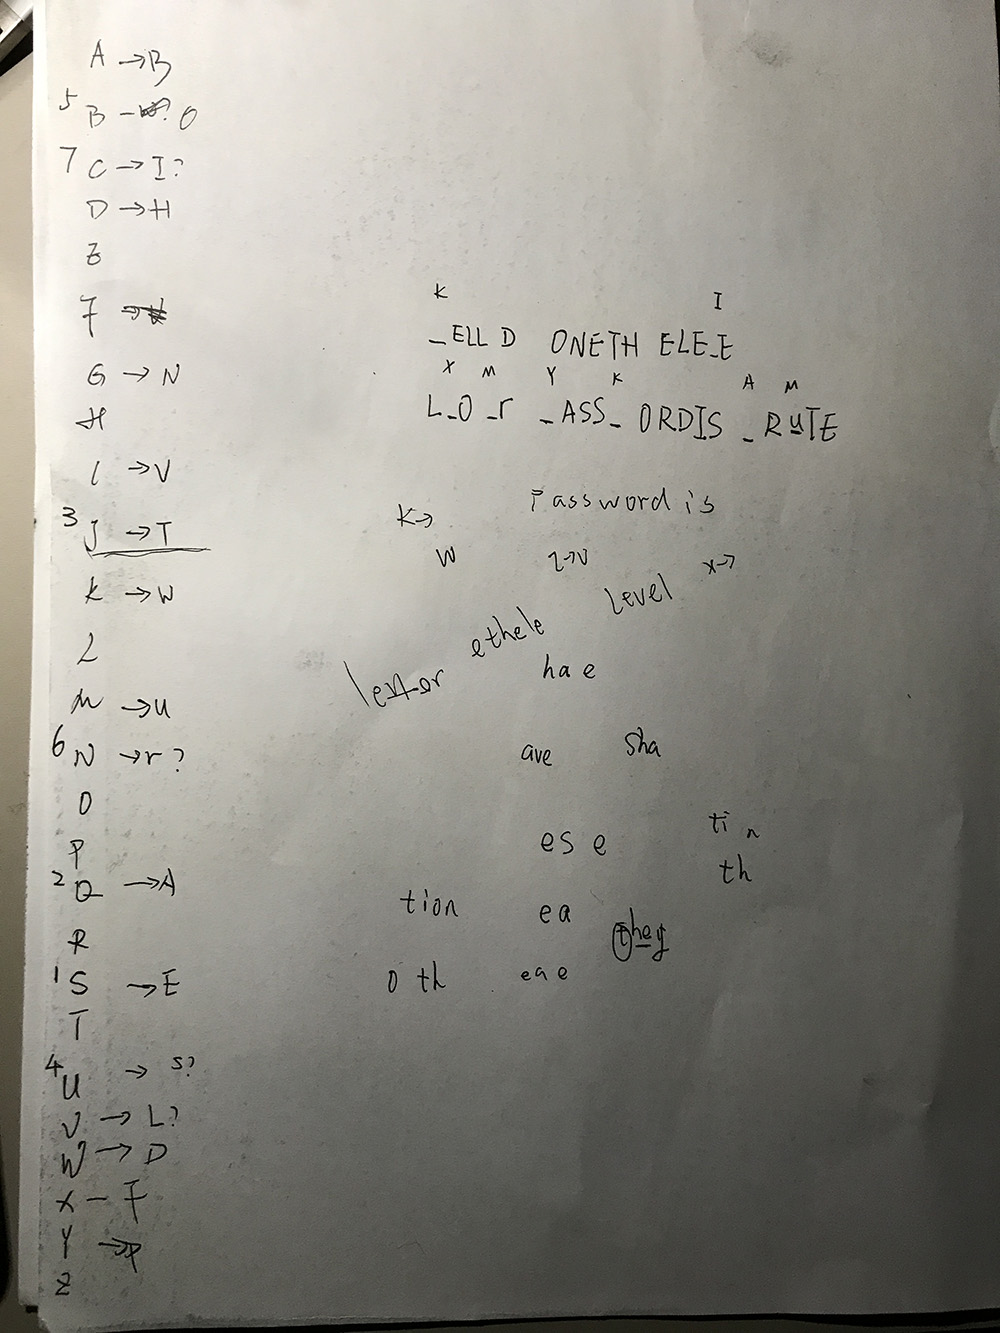 A → B
5 B - O
7 C → I?
D → H
E
F →
G → N
H
I → V
3 J → T
K → W
L
M → U
6 N → r?
O
P
2 Q → A
R
1 S → E
T
4 U → S?
V → L?
W → D
X - F
Y → P
Z
K I
_ELL D ONETH ELE_E
X M Y K A M
L_O_r _ASS_ ORDIS _RUTE
K→ Password is
W I→V X→
ethele Level
letter hae
ave sha
ese ti n
th
tion ea they
O th eae